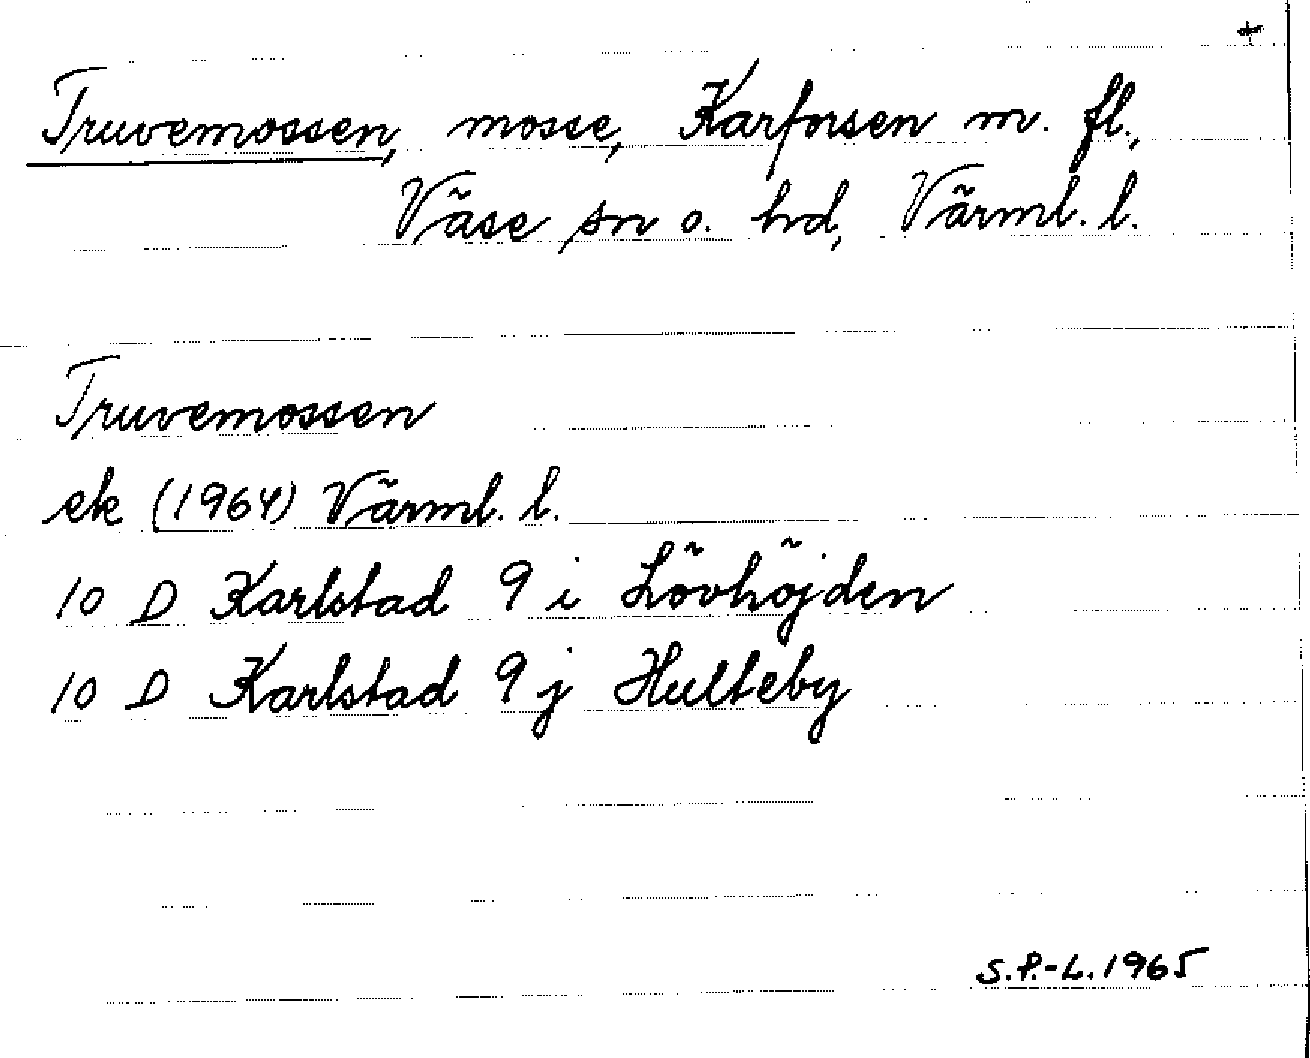 +
Truvemossen, mosse, Karforsen m. fl.,
Väse sn o. hd, Värml. l.
Truvemossen
ek (1964) Värml. l.
10 D Karlstad 9 i Lövhöjden
10 D Karlstad 9 j Hulteby
S.P.-L. 1965